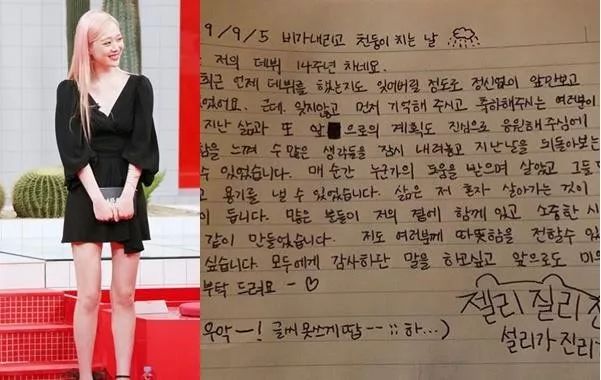 9/9/5 비가내리고 천둥이 치는 날
저의 데뷔 14주년 차네요.
최근 언제 데뷔를 했는지도 잊어버릴 정도로 정신없이 앞만보고
있었어요. 근데, 잊지않고 먼저 기억해 주시고 축하해주시는 여러분이
지난 삶과 또 앞으로의 계획도 진심으로 응원해 주심에
함을 느껴 수 많은 생각들을 잠시 내려놓고 지난날을 뒤돌아보는
수 있었습니다. 매 순간 누군가의 도움을 받으며 살았고 그들
용기를 낼 수 있었습니다. 삶은 저 혼자 살아가는 것이
이 듭니다. 많은 분들이 저의 곁에 함께 있고 소중한 시
같이 만들었습니다. 저도 여러분께 따뜻함을 전할수 있
싶습니다. 모두에게 감사하단 말을 하고싶고 앞으로도 미우
부탁 드려요 - ♡
우악—! 글씨 못쓰게땁 -- ;; 하...)
젤리 질리 진
설리가 진리